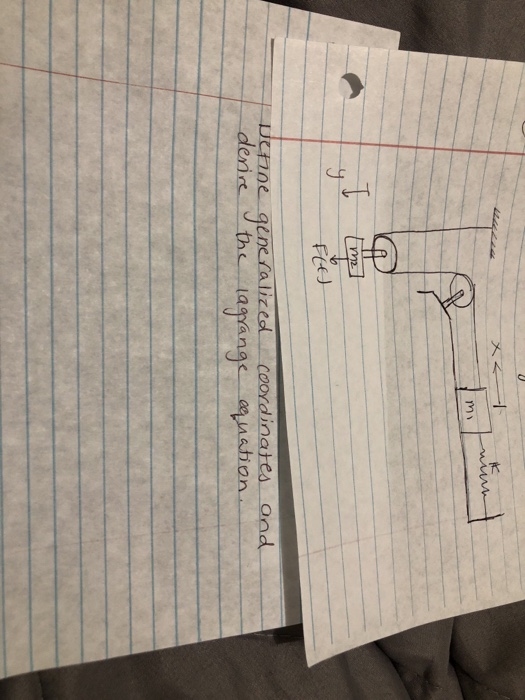 x
m₁
k
y
m₂
F(t)
Define generalized coordinates and
derive the lagrange equation.